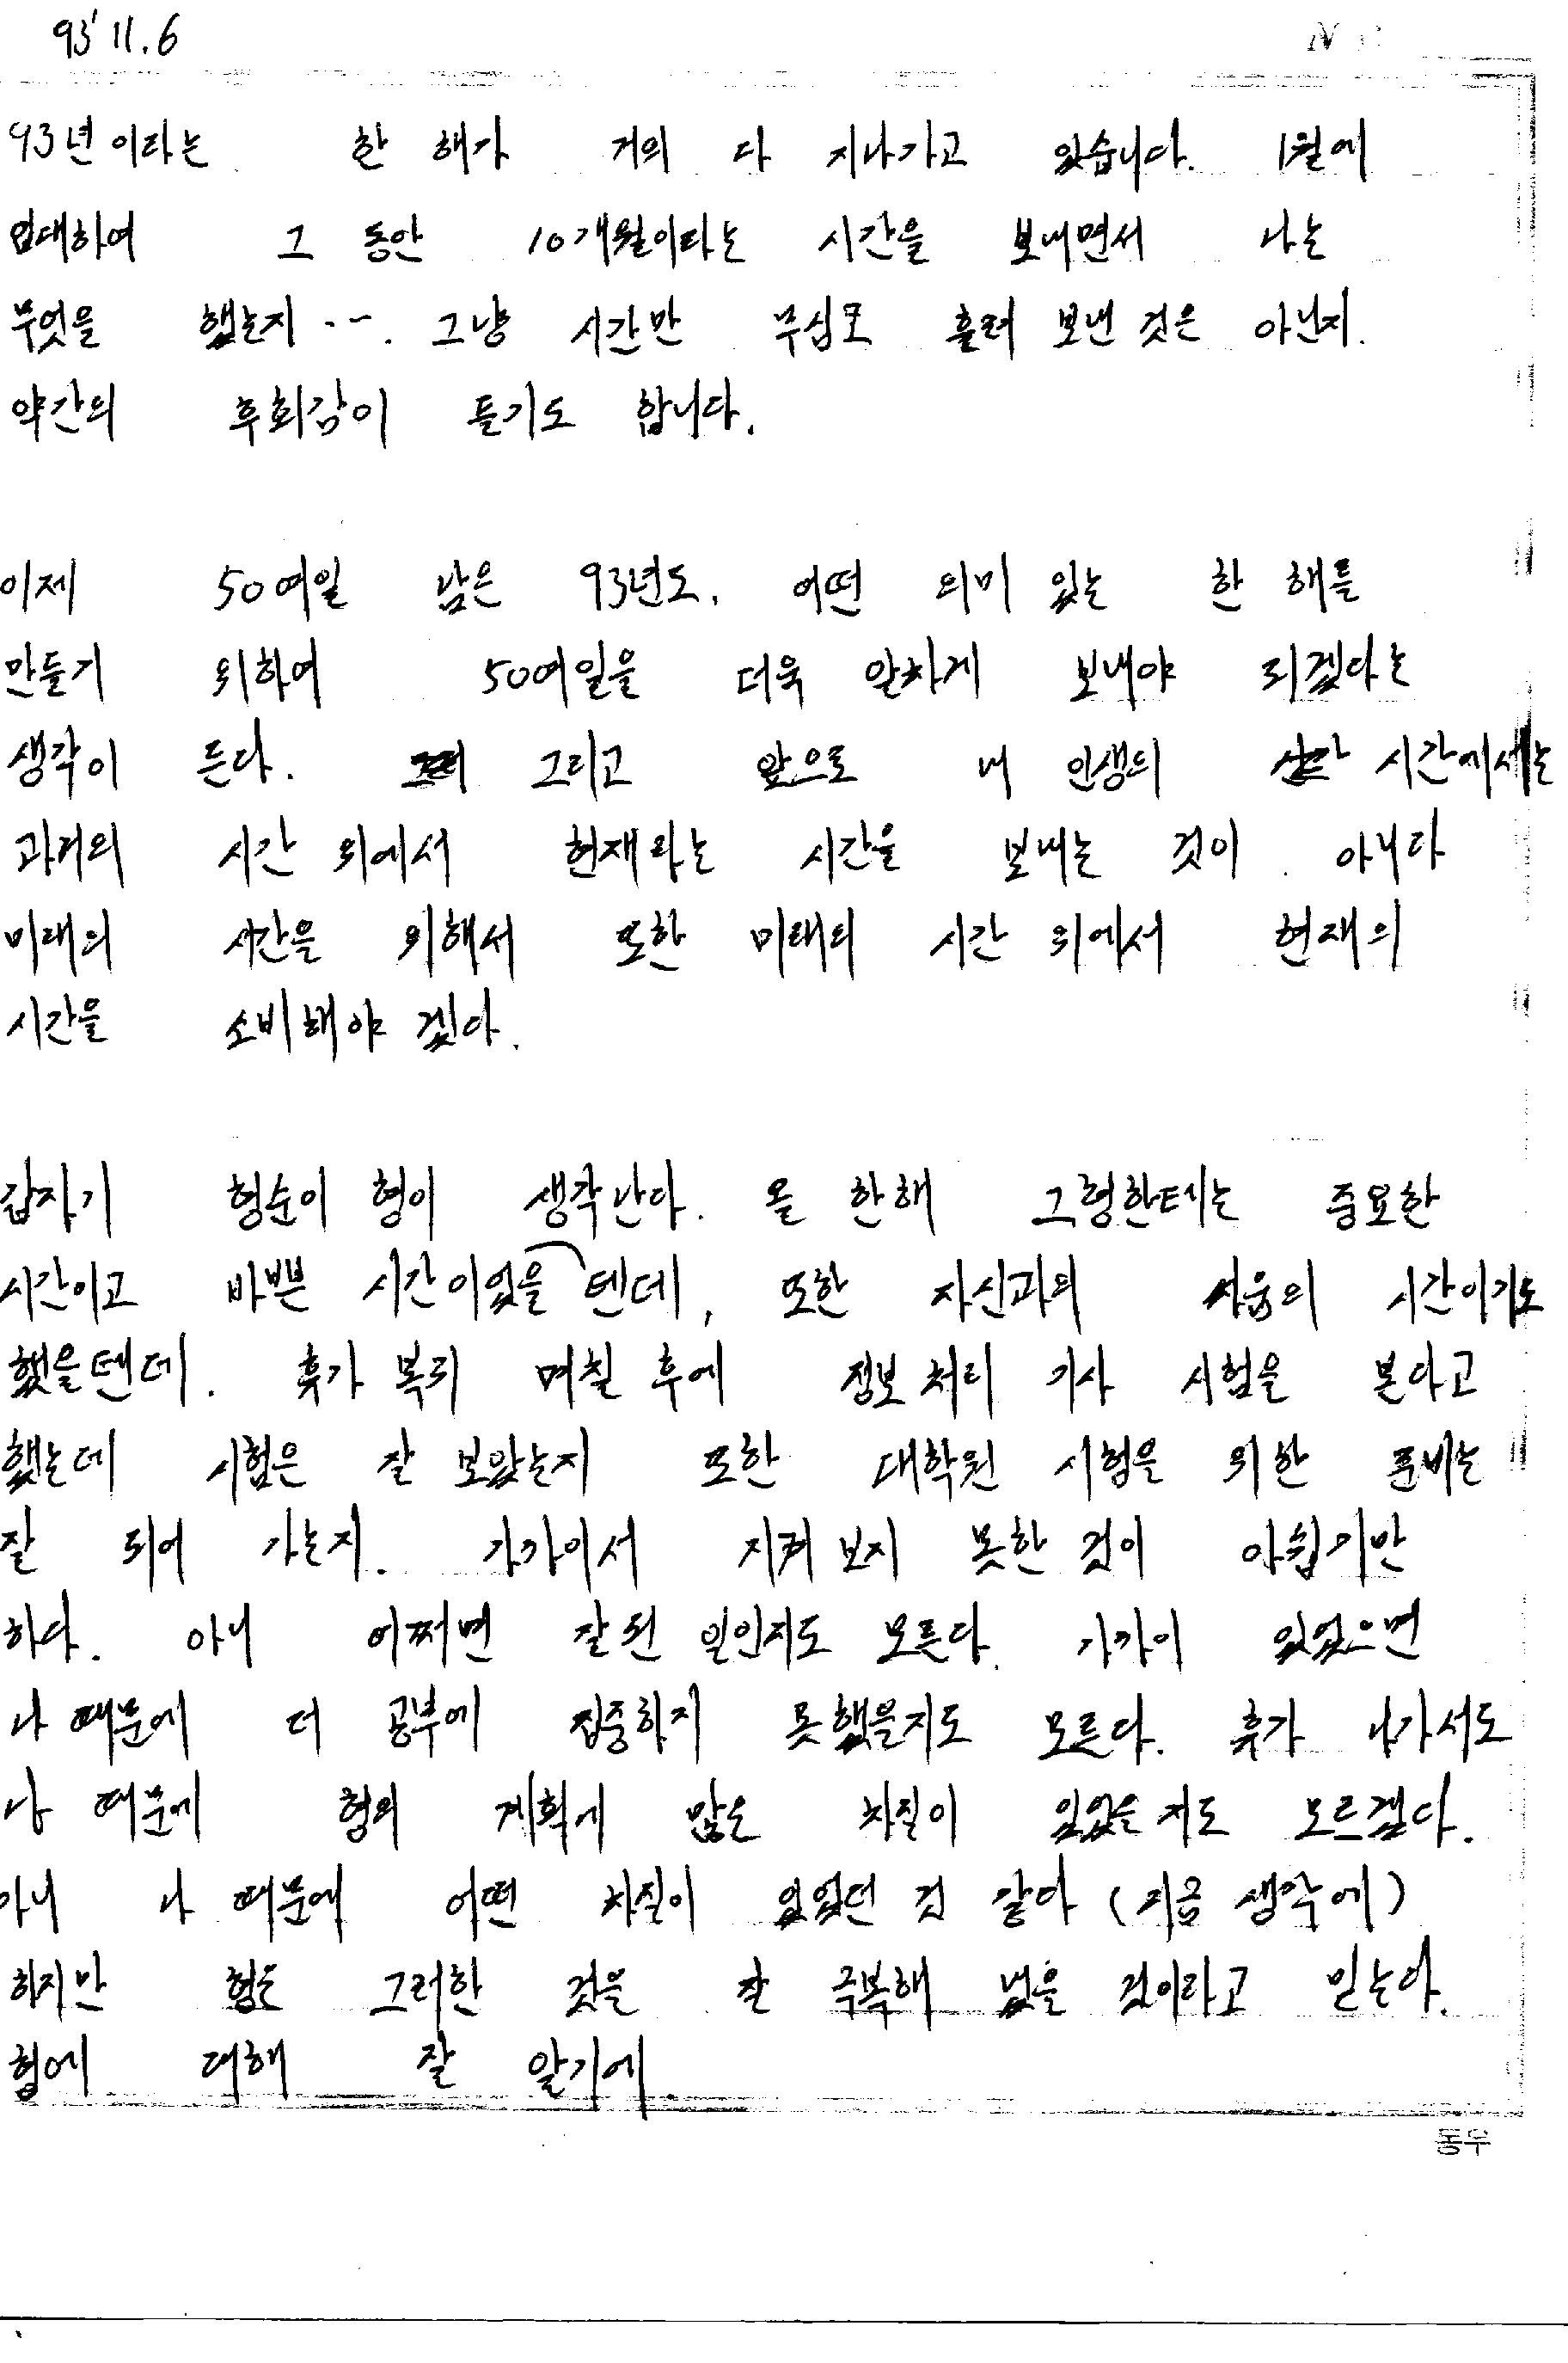 93' 11. 6
93년이라는 한 해가 거의 다 지나가고 있습니다. 1월에
입대하여 그 동안 10개월이라는 시간을 보내면서 나는
무엇을 했는지 .... 그냥 시간만 무심코 흘려 보낸 것은 아닌지.
약간의 후회감이 들기도 합니다.
이제 50여일 남은 93년도. 어떤 의미 있는 한 해를
만들기 위하여 50여일을 더욱 알차게 보내야 되겠다는
생각이 든다. 그리고 앞으로 내 인생의 시간에서는
과거의 시간 위에서 현재라는 시간을 보내는 것이 아니다
미래의 시간을 위해서 또한 미래의 시간 위에서 현재의
시간을 소비해야 겠다.
갑자기 형순이 형이 생각난다. 올 한해 그형한테는 중요한
시간이고 바쁜 시간이었을 텐데, 또한 자신과의 싸움의 시간이기도
했을텐데. 휴가 복귀 며칠 후에 정보처리 기사 시험을 본다고
했는데 시험은 잘 보았는지 또한 대학원 시험을 위한 준비는
잘 되어 가는지. 가까이서 지켜 보지 못한 것이 아쉽기만
하다. 아니 어쩌면 잘된 일인지도 모른다. 가까이 있었으면
나 때문에 더 공부에 집중하지 못했을지도 모른다. 휴가 나가서도
나 때문에 형의 계획에 많은 차질이 있었을 지도 모르겠다.
아니 나 때문에 어떤 차질이 있었던 것 같아 (지금 생각에)
하지만 형은 그러한 것을 잘 극복해 냈을 것이라고 믿는다.
형에 대해 잘 알기에.
동우